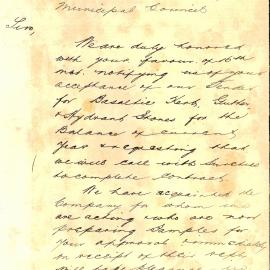 Municipal Council
Sir,
We are duly honored
with your favour of 16th
inst. notifying us of your
acceptance of our Tender
for Basaltic Kerb, Gutter
& Hydrant Stones for the
Balance of current
Year & requesting that
we will call with Sureties
to complete Contract.
We have acquainted the
Company for whom we
are acting & who are now
preparing Samples for
your approval &
on receipt of their reply
will